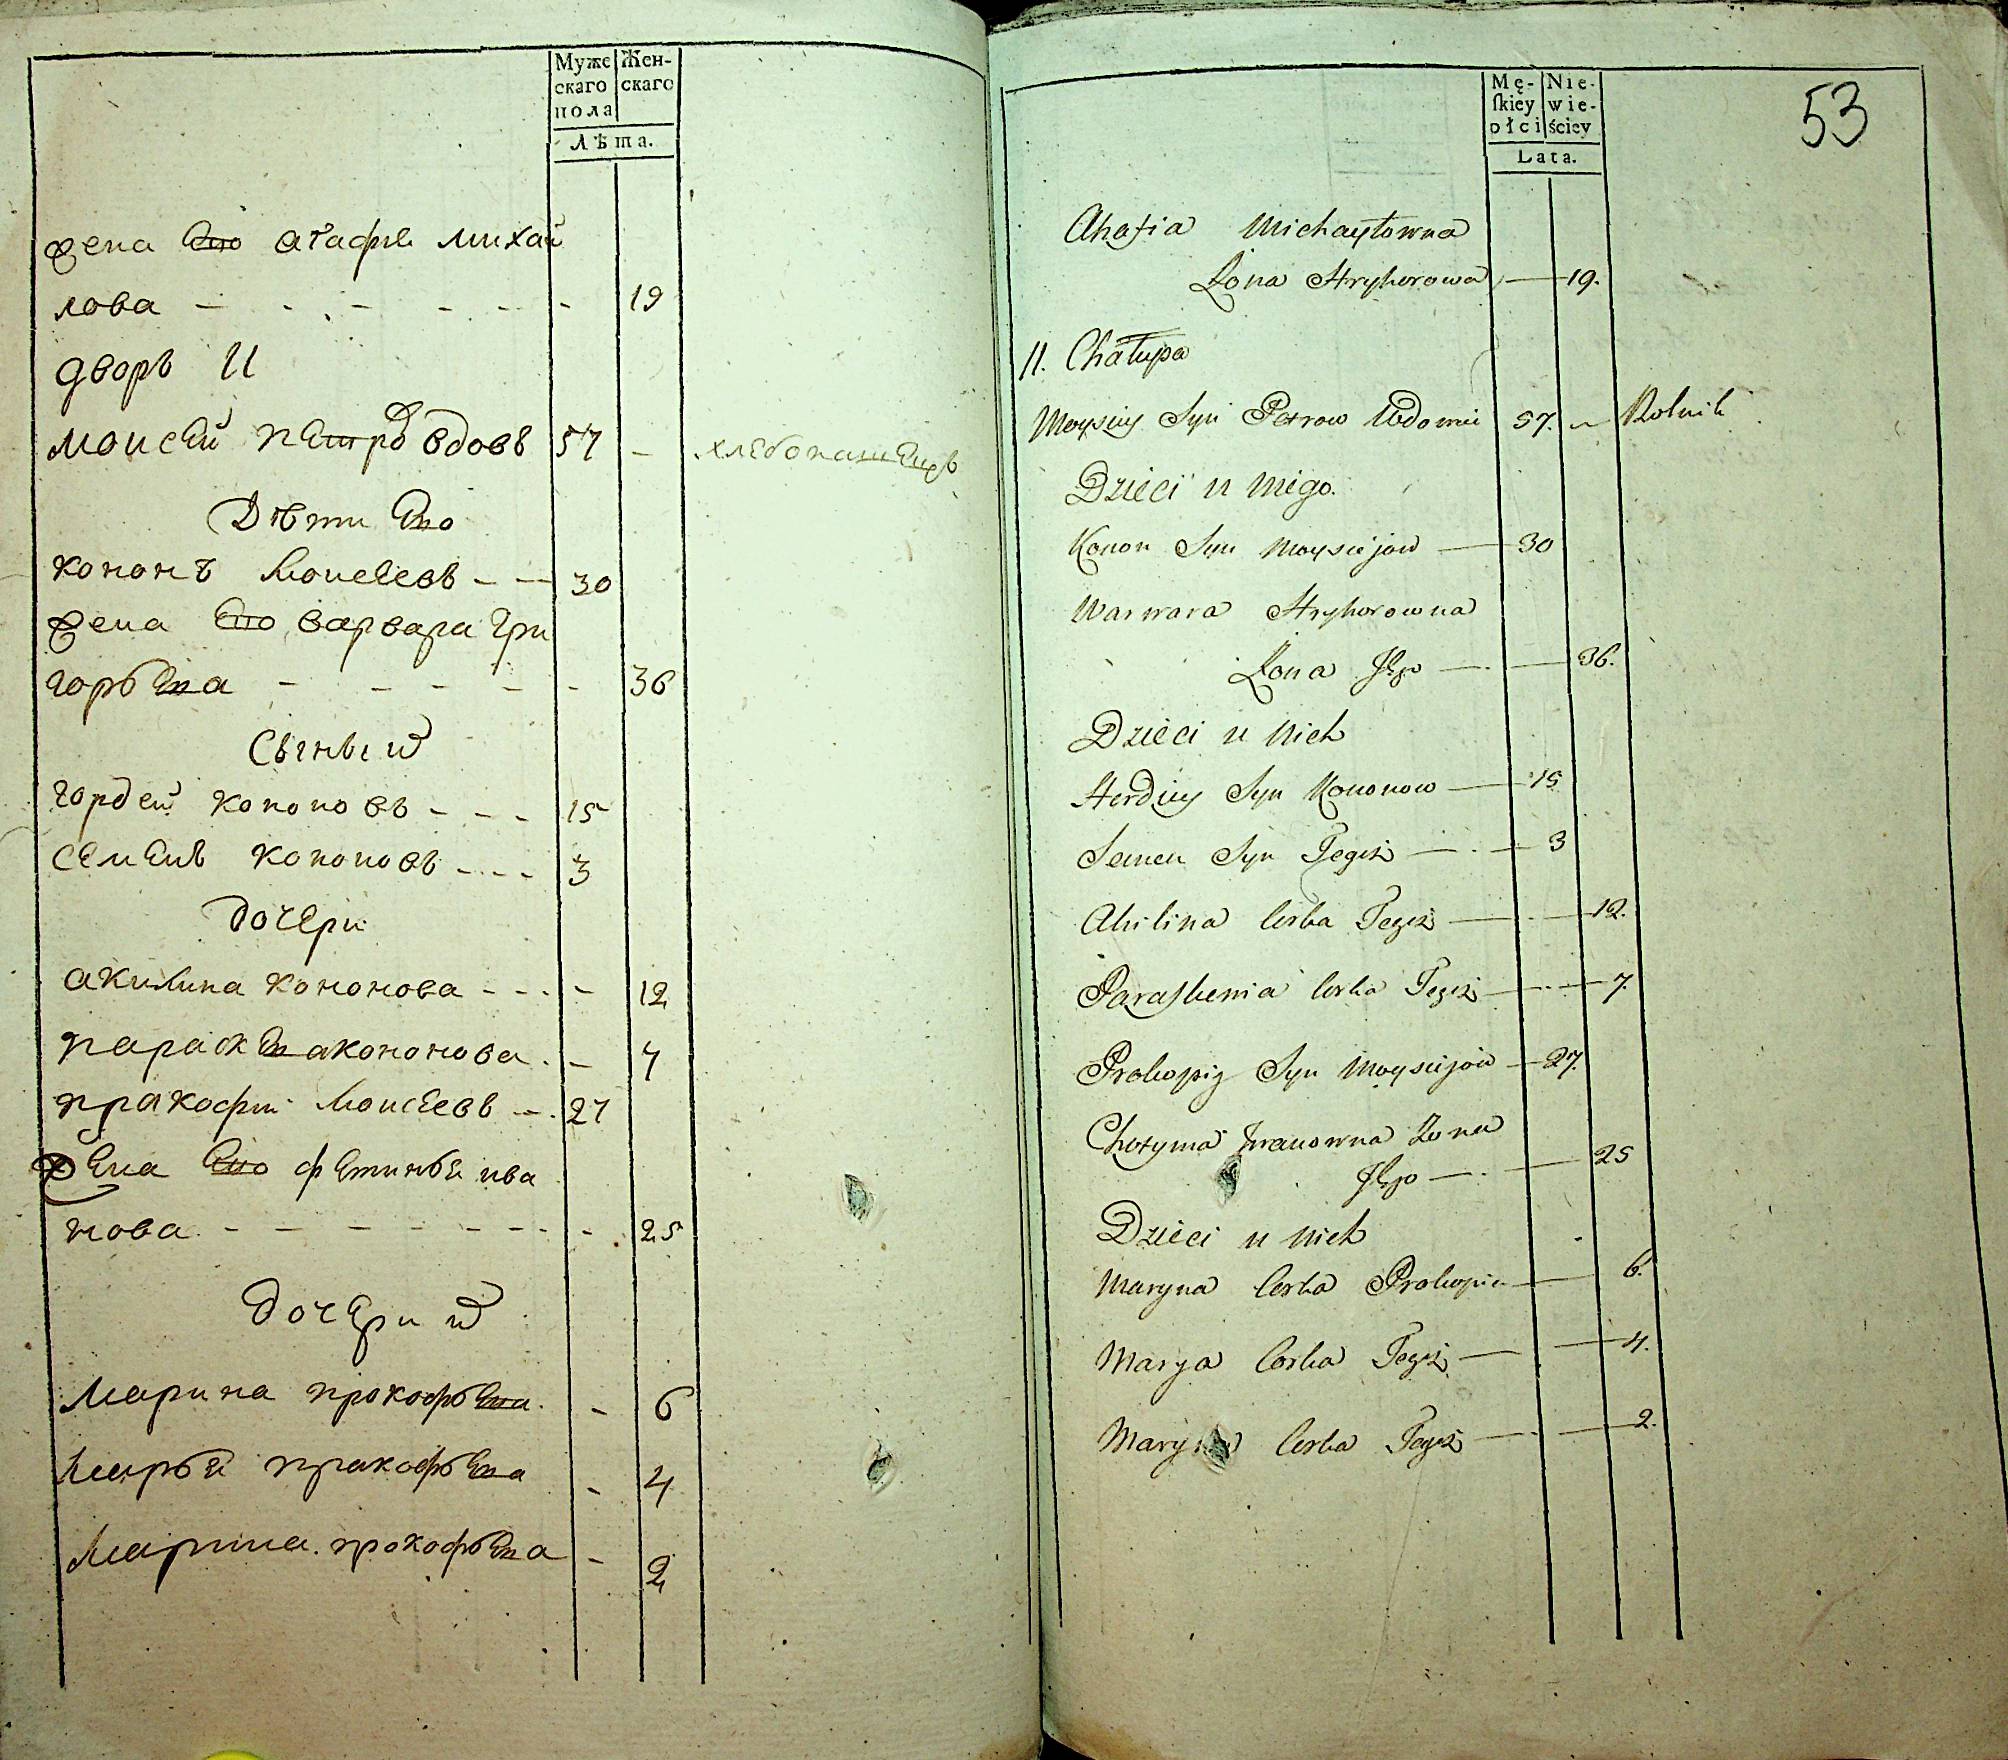 Муже
скаго
пола
Жен-
скаго
Лѣта.
жена Его агафия михай
лова 19
дворъ 11
моисей петровъ вдовъ 57 - хлебопашецъ
Дѣти Его
кононъ Моисеевъ 30
жена Его варвара гри
горьева 36
Сыны их
гордей кононовъ 15
семенъ кононовъ 3
дочери
акилина кононова - 12
параскева кононова - 7
пракофий Моисеевъ 27
жена Его фетинья ива
нова - 25
дочери их
Марина прокофьева - 6
Марья пракофьева - 4
Марина прокофьева - 2
53
Mę-
skiey
płci
Nie-
wie-
ściey
Lata.
Ahafia Michayłowna
Żona Hryhorowa 19.
11. Chałupa
Moysiey Syn Petrow Wdowiec 57. Rolnik
Dzieci u niego.
Konon Syn Moysiejow 30
Warwara Hryhorowna
Żona Jego 36.
Dzieci u nich
Hordiey Syn Kononow 15
Semen Syn Tegoż 3
Akilina Corka Tegoż 12.
Paraskewia Corka Tegoż 7.
Prokopiy Syn Moysiejow 27.
Chotyma Iwanowna Żona
Jego 25
Dzieci u nich
Maryna Corka Prokopia 6.
Marya Corka Tegoż 4.
Maryna Corka Tegoż 2.